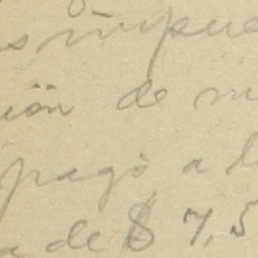 s impue
ión de m
pagó a l
a de $ 7,5